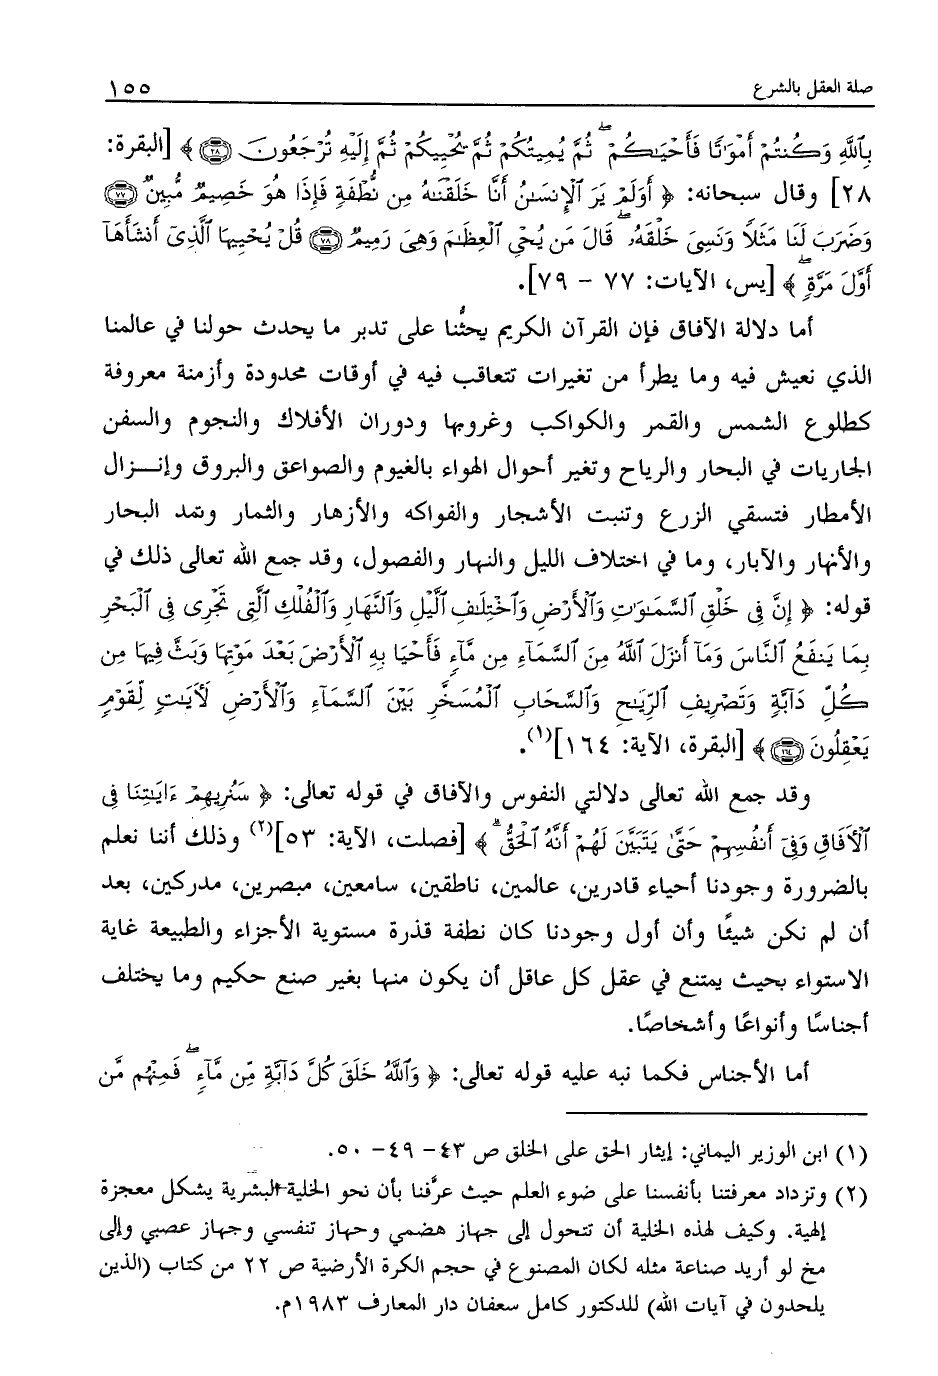 صلة العقل بالشرع ١٥٥
بِٱللَّهِ وَكُنتُمْ أَمْوَٰتًا فَأَحْيَـٰكُمْ ۖ ثُمَّ يُمِيتُكُمْ ثُمَّ يُحْيِيكُمْ ثُمَّ إِلَيْهِ تُرْجَعُونَ ﴿٢٨﴾ ﴾ [البقرة:
٢٨] وقال سبحانه: ﴿ أَوَلَمْ يَرَ ٱلْإِنسَـٰنُ أَنَّا خَلَقْنَـٰهُ مِن نُّطْفَةٍ فَإِذَا هُوَ خَصِيمٌ مُّبِينٌ ﴿٧٧﴾
وَضَرَبَ لَنَا مَثَلًا وَنَسِىَ خَلْقَهُۥ ۖ قَالَ مَن يُحْىِ ٱلْعِظَـٰمَ وَهِىَ رَمِيمٌ ﴿٧٨﴾ قُلْ يُحْيِيهَا ٱلَّذِىٓ أَنشَأَهَآ
أَوَّلَ مَرَّةٍ ۖ ﴾ [يس، الآيات: ٧٧ – ٧٩].
أما دلالة الآفاق فإن القرآن الكريم يحثُّنا على تدبر ما يحدث حولنا في عالمنا
الذي نعيش فيه وما يطرأ من تغيرات تتعاقب فيه في أوقات محدودة وأزمنة معروفة
كطلوع الشمس والقمر والكواكب وغروبها ودوران الأفلاك والنجوم والسفن
الجاريات في البحار والرياح وتغير أحوال الهواء بالغيوم والصواعق والبروق وإنـزال
الأمطار فتسقي الزرع وتنبت الأشجار والفواكه والأزهار والثمار وتمد البحار
والأنهار والآبار، وما في اختلاف الليل والنهار والفصول، وقد جمع الله تعالى ذلك في
قوله: ﴿ إِنَّ فِى خَلْقِ ٱلسَّمَـٰوَٰتِ وَٱلْأَرْضِ وَٱخْتِلَـٰفِ ٱلَّيْلِ وَٱلنَّهَارِ وَٱلْفُلْكِ ٱلَّتِى تَجْرِى فِى ٱلْبَحْرِ
بِمَا يَنفَعُ ٱلنَّاسَ وَمَآ أَنزَلَ ٱللَّهُ مِنَ ٱلسَّمَآءِ مِن مَّآءٍ فَأَحْيَا بِهِ ٱلْأَرْضَ بَعْدَ مَوْتِهَا وَبَثَّ فِيهَا مِن
كُلِّ دَآبَّةٍ وَتَصْرِيفِ ٱلرِّيَـٰحِ وَٱلسَّحَابِ ٱلْمُسَخَّرِ بَيْنَ ٱلسَّمَآءِ وَٱلْأَرْضِ لَـَٔايَـٰتٍ لِّقَوْمٍ
يَعْقِلُونَ ﴿١٦٤﴾ ﴾ [البقرة، الآية: ١٦٤](١).
وقد جمع الله تعالى دلالتي النفوس والآفاق في قوله تعالى: ﴿ سَنُرِيهِمْ ءَايَـٰتِنَا فِى
ٱلْـَٔافَاقِ وَفِىٓ أَنفُسِهِمْ حَتَّىٰ يَتَبَيَّنَ لَهُمْ أَنَّهُ ٱلْحَقُّ ۗ ﴾ [فصلت، الآية: ٥٣](٢) وذلك أننا نعلم
بالضرورة وجودنا أحياء قادرين، عالمين، ناطقين، سامعين، مبصرين، مدركين، بعد
أن لم نكن شيئًا وأن أول وجودنا كان نطفة قذرة مستوية الأجزاء والطبيعة غاية
الاستواء بحيث يمتنع في عقل كل عاقل أن يكون منها بغير صنع حكيم وما يختلف
أجناسًا وأنواعًا وأشخاصًا.
أما الأجناس فكما نبه عليه قوله تعالى: ﴿ وَٱللَّهُ خَلَقَ كُلَّ دَآبَّةٍ مِّن مَّآءٍ ۖ فَمِنْهُم مَّن
(١) ابن الوزير اليماني: إيثار الحق على الخلق ص ٤٣– ٤٩– ٥٠.
(٢) وتزداد معرفتنا بأنفسنا على ضوء العلم حيث عرَّفنا بأن نحو الخلية البشرية يشكل معجزة
إلهية. وكيف لهذه الخلية أن تتحول إلى جهاز هضمي وحهاز تنفسي وجهاز عصبي وإلى
مخ لو أريد صناعة مثله لكان المصنوع في حجم الكرة الأرضية ص ٢٢ من كتاب (الذين
يلحدون في آيات الله) للدكتور كامل سعفان دار المعارف ١٩٨٣م.